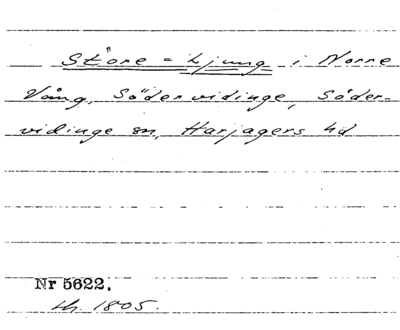 Störe-Ljung i Norre
Vång, Södervidinge, Söder-
vidinge sn, Harjagers hd
Nr 5622.
LH. 1805.